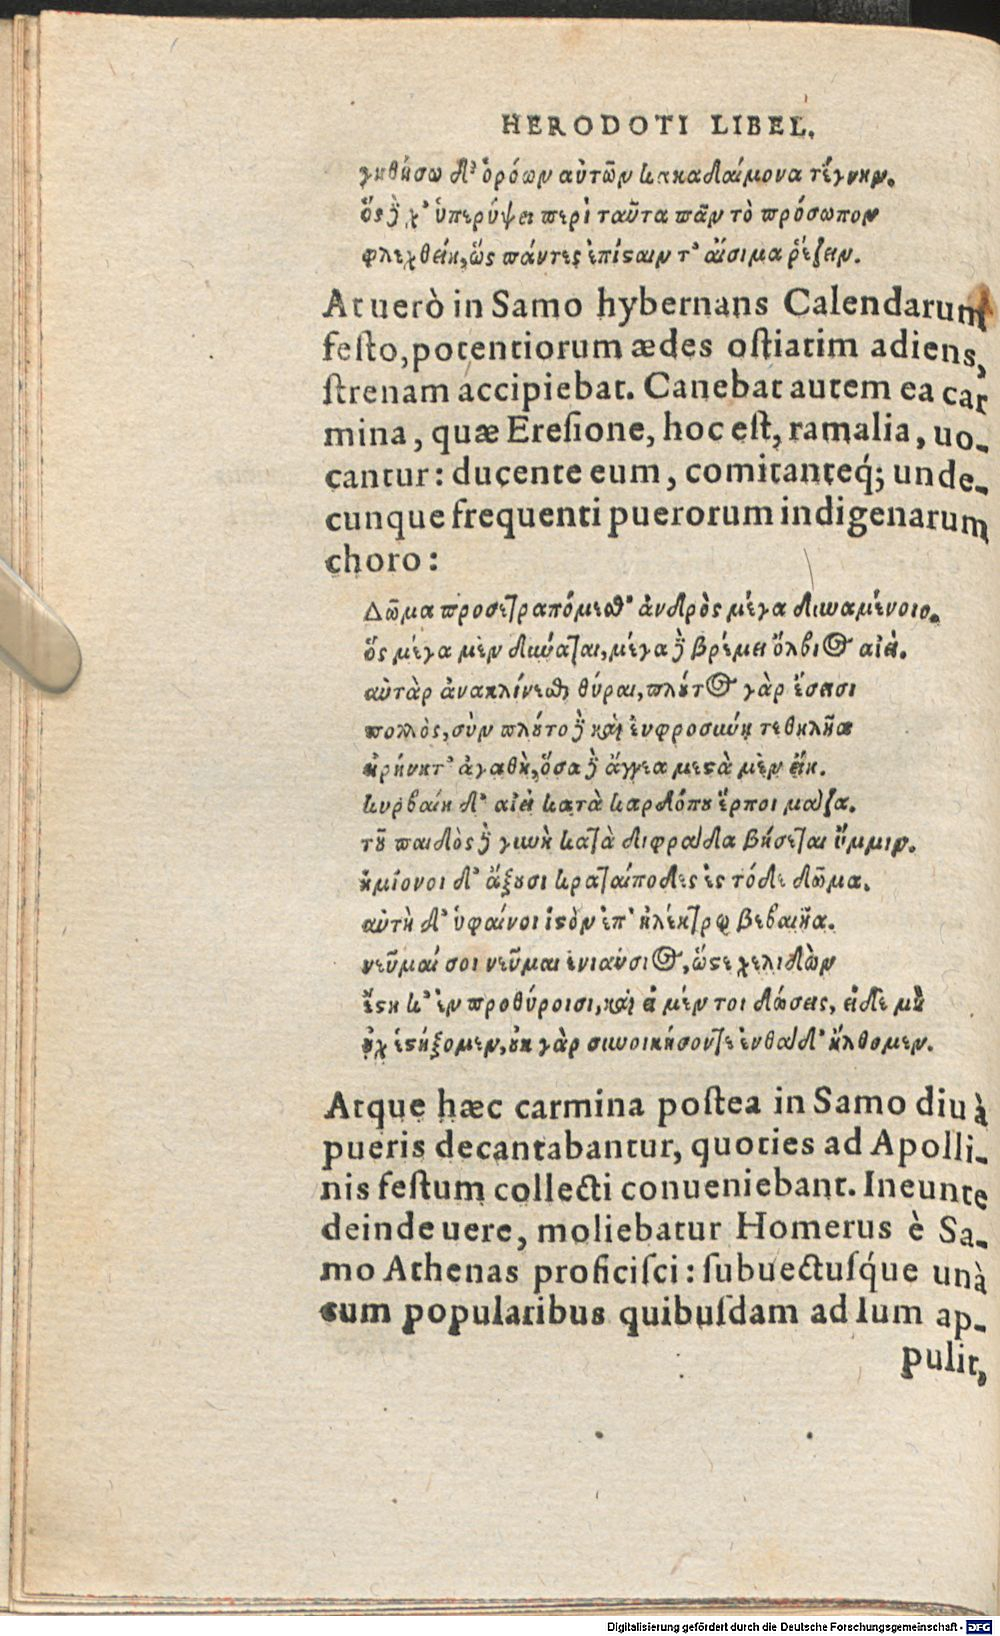 HERODOTI LIBEL.
γηθήσω δ' ὁρόων αὐτῶν κακοδαίμονα τέχνην.
ὃς δὲ χ' ὑπερύψει περὶ ταῦτα πᾶν τὸ πρόσωπον
φλεχθείη, ὥς πάντες ἐπίσαιν τ' αἴσιμα ῥέζειν.
At uerò in Samo hybernans Calendarum
festo, potentiorum ædes ostiatim adiens,
strenam accipiebat. Canebat autem ea car
mina, quæ Eresione, hoc est, ramalia, uo-
cantur: ducente eum, comitanteq́; unde-
cunque frequenti puerorum indigenarum
choro:
Δῶμα προσετραπόμεσθ' ἀνδρὸς μέγα δυναμένοιο.
ὃς μέγα μὲν δύναται, μέγα δὲ βρέμει ὄλβιος αἰεί.
αὐτὰρ ἀνακλίνεσθε θύραι, πλοῦτος γὰρ ἔσεισι
πολλὸς, σὺν πλούτῳ δὲ καὶ ἐυφροσύνη τεθηλῆα
εἰρήνη τ' ἀγαθὴ, ὅσα δὲ ἄγγεα μεστὰ μὲν εἴη.
κυρβαίη δ' αἰεὶ κατὰ καρδόπου ἕρποι μάζα.
τοῦ παιδὸς δὲ γυνὴ κατὰ διφράδα βήσεται ὔμμιν.
ἡμίονοι δ' ἄξουσι κραταίποδες ἐς τόδε δῶμα.
αὐτὴ δ' ὑφαίνοι ἱστὸν ἐπ' ἠλέκτρῳ βεβαυῖα.
νεῦμαί σοι νεῦμαι ἐνιαύσιος, ὥστε χελιδὼν
ἔστη κ' ἐν προθύροισι, καὶ εἰ μέν τοι δώσεις, εἰ δὲ μὴ
οὐχ ἑστήξομεν, οὐκ γὰρ συνοικήσοντε ἐνθάδ' ἤλθομεν.
Atque hæc carmina postea in Samo diu à
pueris decantabantur, quoties ad Apolli-
nis festum collecti conueniebant. Ineunte
deinde uere, moliebatur Homerus è Sa-
mo Athenas proficisci: subuectusq́ue unà
cum popularibus quibusdam ad Ium ap-
pulit,
Digitalisierung gefördert durch die Deutsche Forschungsgemeinschaft - DFG